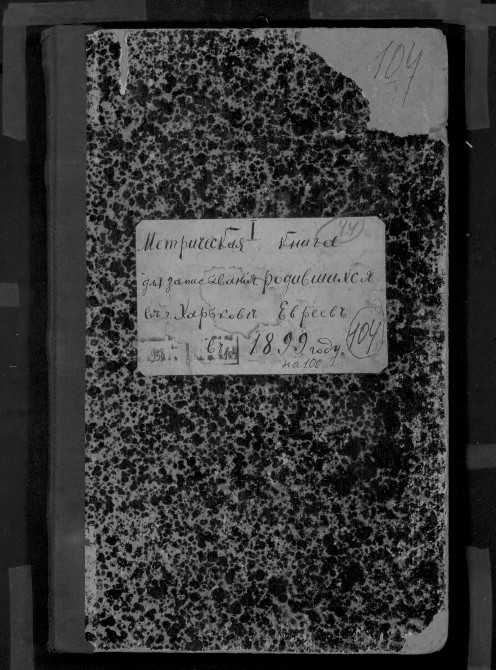 104
I
Метрическая книга
44
для записыванія родившихся
въ г. Харьковѣ Евреевъ
въ 1899 году.
104
на 100